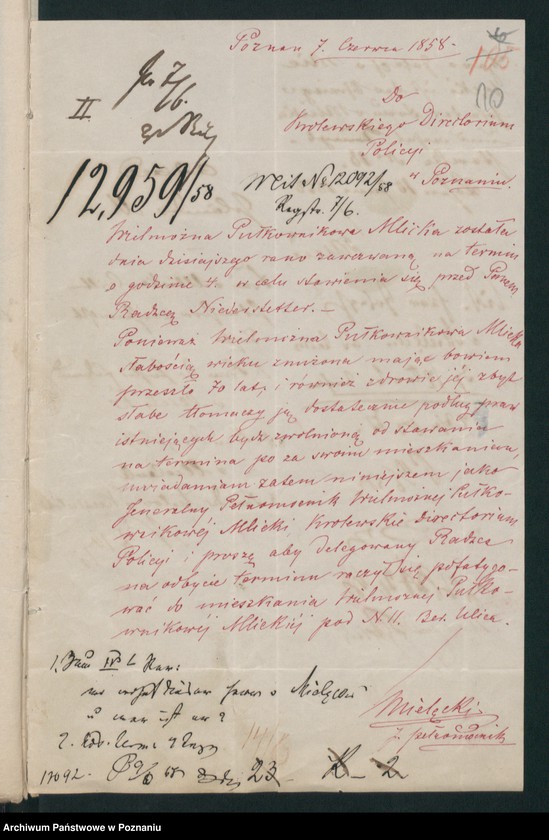 Poznan 7. Czerwca 1858.
10
Do
Krolewskiego Directorium
Policyi
w Poznaniu.
II.
12,959/58
Mit No 12092/58
Regstr. 7/6.
Wielmożna Pułkownikowa Mlicka została
dnia dzisiejszego rano zawezwaną na termin
o godzinie 4. w celu stawienia się przed
Radzcą Niederstetter.
Ponieważ Wielmożna Pułkownikowa Mlicka
słabością wieku znużona mając bowiem
przeszło 70 lat, i również zdrowie jéj zbyt
słabe tłomaczy ją dostatecznie podług praw
istniejących bydź zwolnioną od stawania
na termina po za swoim mieszkaniem,
uwiadamiam zatem niniejszem jako
Generalny Pełnomocnik Wielmożnej Pułko-
wnikowéj Mlicki, Krolewskie Directorium
Policyi i proszę aby delegowany Radzca
na odbycie terminu raczył się pofatygo-
wać do mieszkania Wielmożnej Pułko-
wnikowéj Mlickiéj pod N. 11. Ber. Ulica.
Mielęcki
j. pełnomocnik
1. Zum IV
u wer ist er?
2.
12092. 23 2
Archiwum Państwowe w Poznaniu